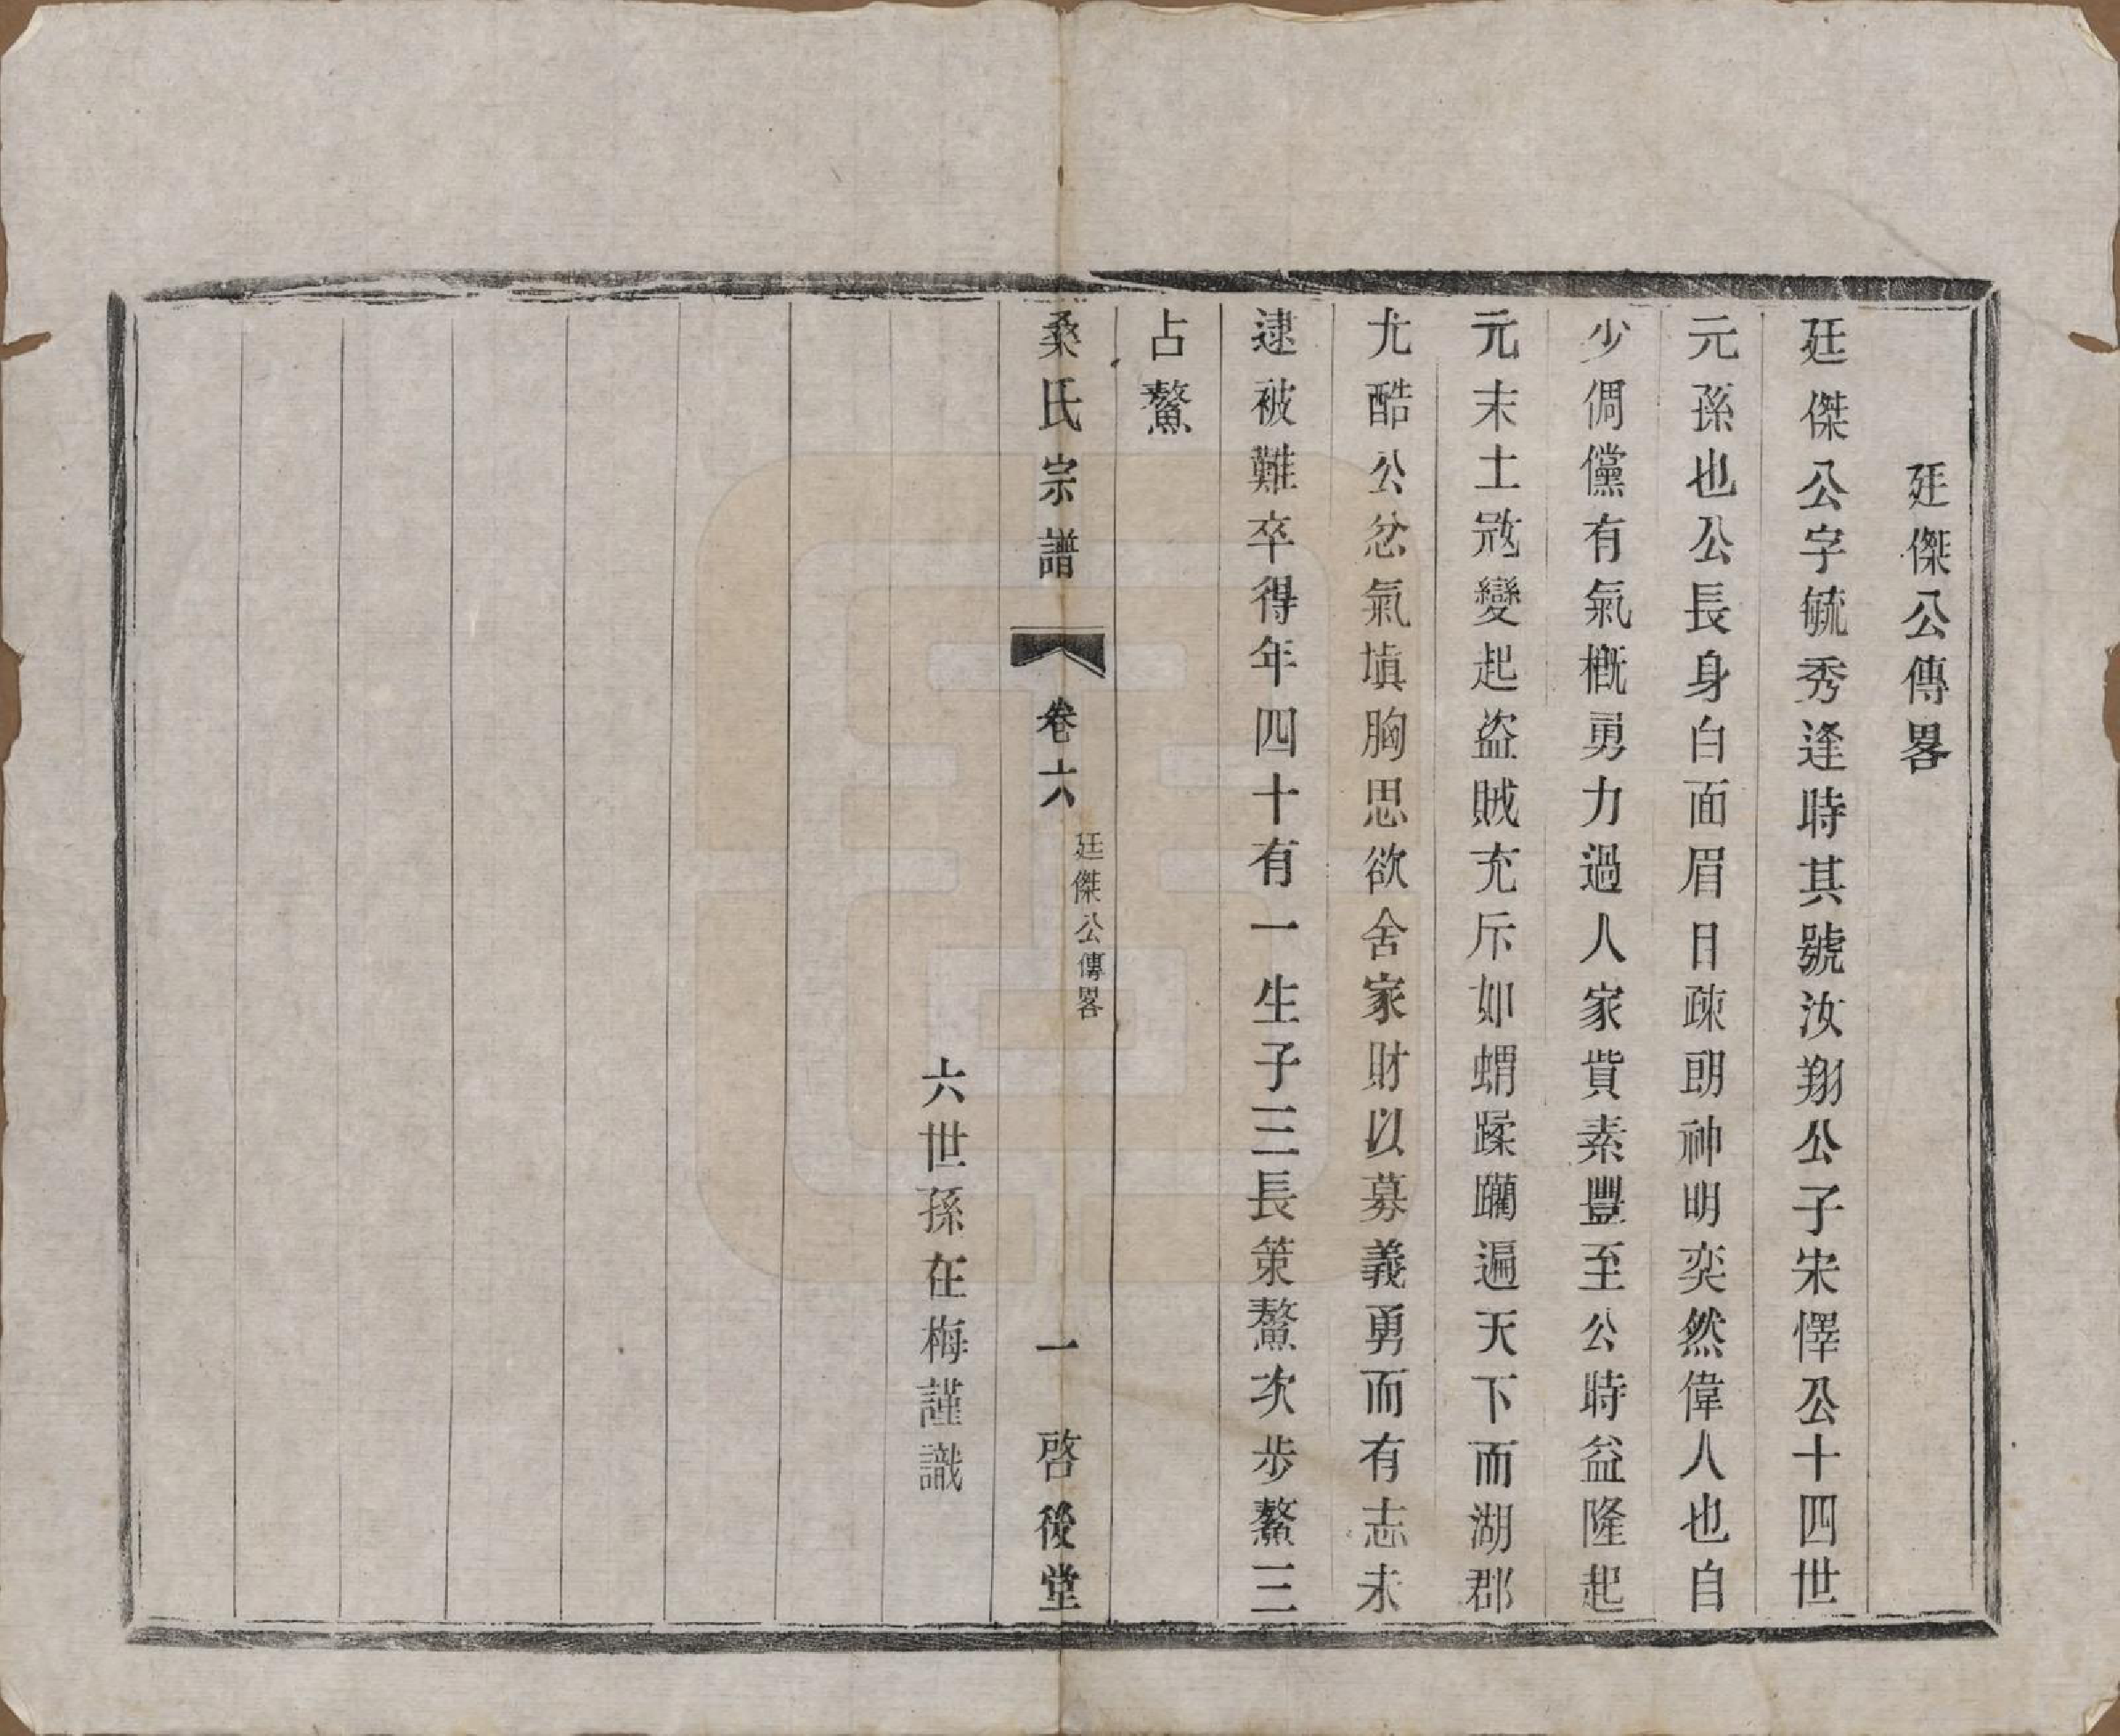 廷傑公傳畧
廷傑公字毓秀逢時其號汝翔公子宋懌公十四世
元孫也公長身白面眉目疎朗神明奕然偉人也自
少倜儻有氣概勇力過人家貲素豐至公時益隆起
元末土宼變起盜賊充斥如蝟蹂躪遍天下而湖郡
尤酷公忿氣塡胸思欲舍家財以募義勇而有志未
逮被難卒得年四十有一生子三長策鰲次步鰲三
占鰲
桑氏宗譜 卷六 廷傑公傳畧 一 啓後堂
六世孫在梅謹識